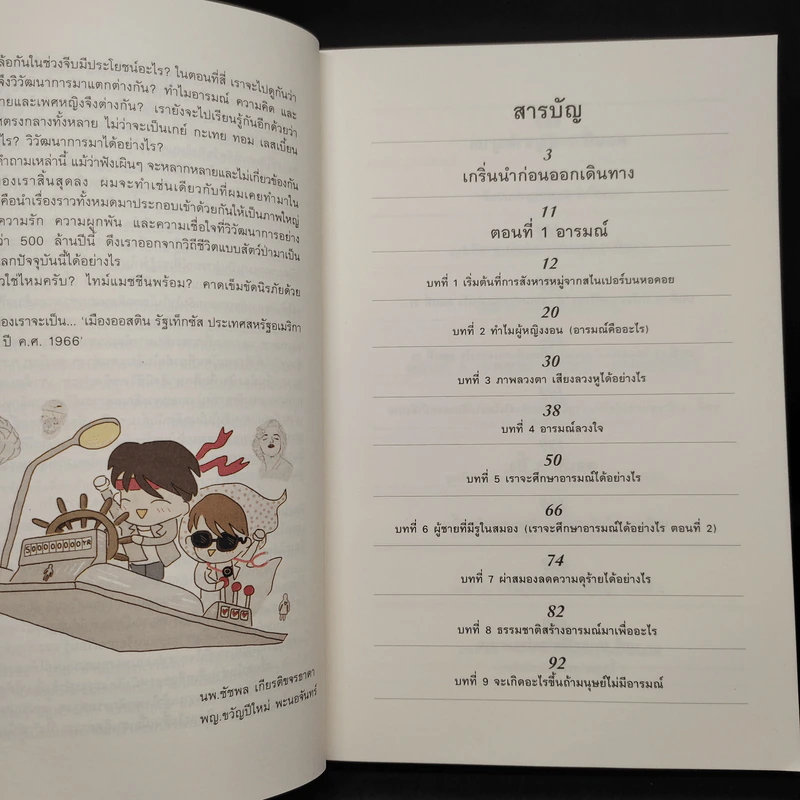 ล้อกันในช่วงจีบมีประโยชน์อะไร? ในตอนที่สี่ เราจะไปดูกันว่า
จึงวิวัฒนาการมาแตกต่างกัน? ทำไมอารมณ์ ความคิด และ
ายและเพศหญิงจึงต่างกัน? เรายังจะไปเรียนรู้กันอีกด้วยว่า
ศตรงกลางทั้งหลาย ไม่ว่าจะเป็นเกย์ กะเทย ทอม เลสเบี้ยน
ไร? วิวัฒนาการมาได้อย่างไร?
คำถามเหล่านี้ แม้ว่าฟังเผินๆ จะหลากหลายและไม่เกี่ยวข้องกัน
ของเราสิ้นสุดลง ผมจะทำเช่นเดียวกับที่ผมเคยทำมาใน
คือนำเรื่องราวทั้งหมดมาประกอบเข้าด้วยกันให้เป็นภาพใหญ่
ความรัก ความผูกพัน และความเชื่อใจที่วิวัฒนาการอย่าง
ว่า 500 ล้านปีนี้ ดึงเราออกจากวิถีชีวิตแบบสัตว์ป่ามาเป็น
ลกปัจจุบันนี้ได้อย่างไร
วใช่ไหมครับ? ไทม์แมชชีนพร้อม? คาดเข็มขัดนิรภัยด้วย
องเราจะเป็น... 'เมืองออสติน รัฐเท็กซัส ประเทศสหรัฐอเมริกา
ปี ค.ศ. 1966'
500000000YR
นพ.ชัชพล เกียรติขจรธาดา
พญ.ขวัญปีใหม่ พะนอจันทร์
สารบัญ
3
เกริ่นนำก่อนออกเดินทาง
11
ตอนที่ 1 อารมณ์
12
บทที่ 1 เริ่มต้นที่การสังหารหมู่จากสไนเปอร์บนหอคอย
20
บทที่ 2 ทำไมผู้หญิงงอน (อารมณ์คืออะไร)
30
บทที่ 3 ภาพลวงตา เสียงลวงหูได้อย่างไร
38
บทที่ 4 อารมณ์ลวงใจ
50
บทที่ 5 เราจะศึกษาอารมณ์ได้อย่างไร
66
บทที่ 6 ผู้ชายที่มีรูในสมอง (เราจะศึกษาอารมณ์ได้อย่างไร ตอนที่ 2)
74
บทที่ 7 ผ่าสมองลดความดุร้ายได้อย่างไร
82
บทที่ 8 ธรรมชาติสร้างอารมณ์มาเพื่ออะไร
92
บทที่ 9 จะเกิดอะไรขึ้นถ้ามนุษย์ไม่มีอารมณ์